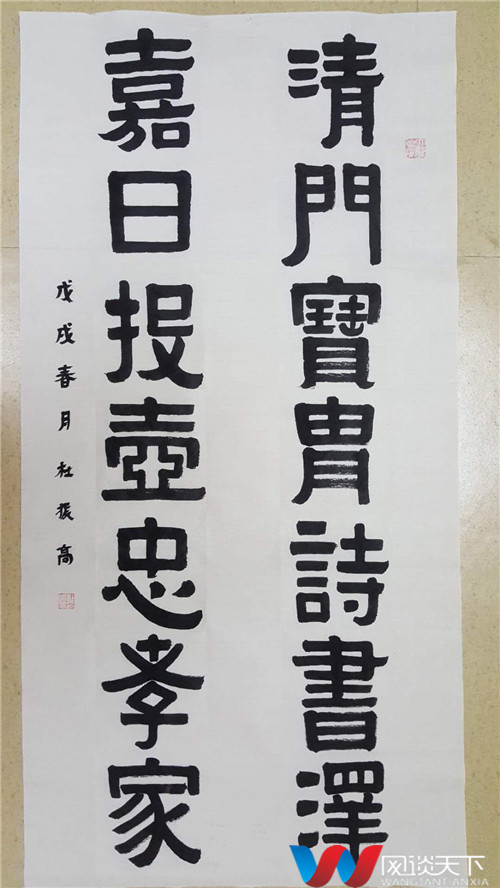 清門寶胄詩書澤
嘉日投壺忠孝家
戊戌春月杜振高
网谈天下
WANGTANTIANXIA